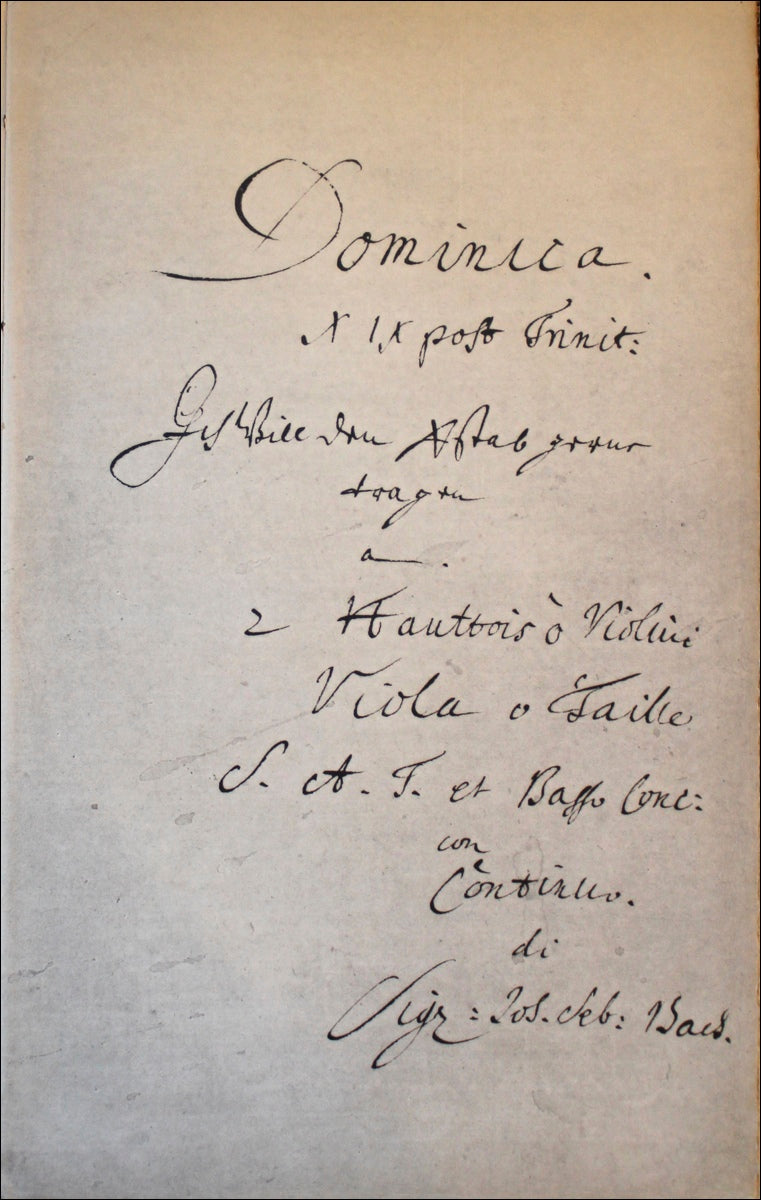 Dominica.
XIX post Trinit:
Ich Will den XStab gerne
tragen
a.
2 Hautbois ò Violini
Viola o Taille
S. A. T. et Basso Conc:
con
Continuo.
di
Sigr: Joh. Seb: Bach.